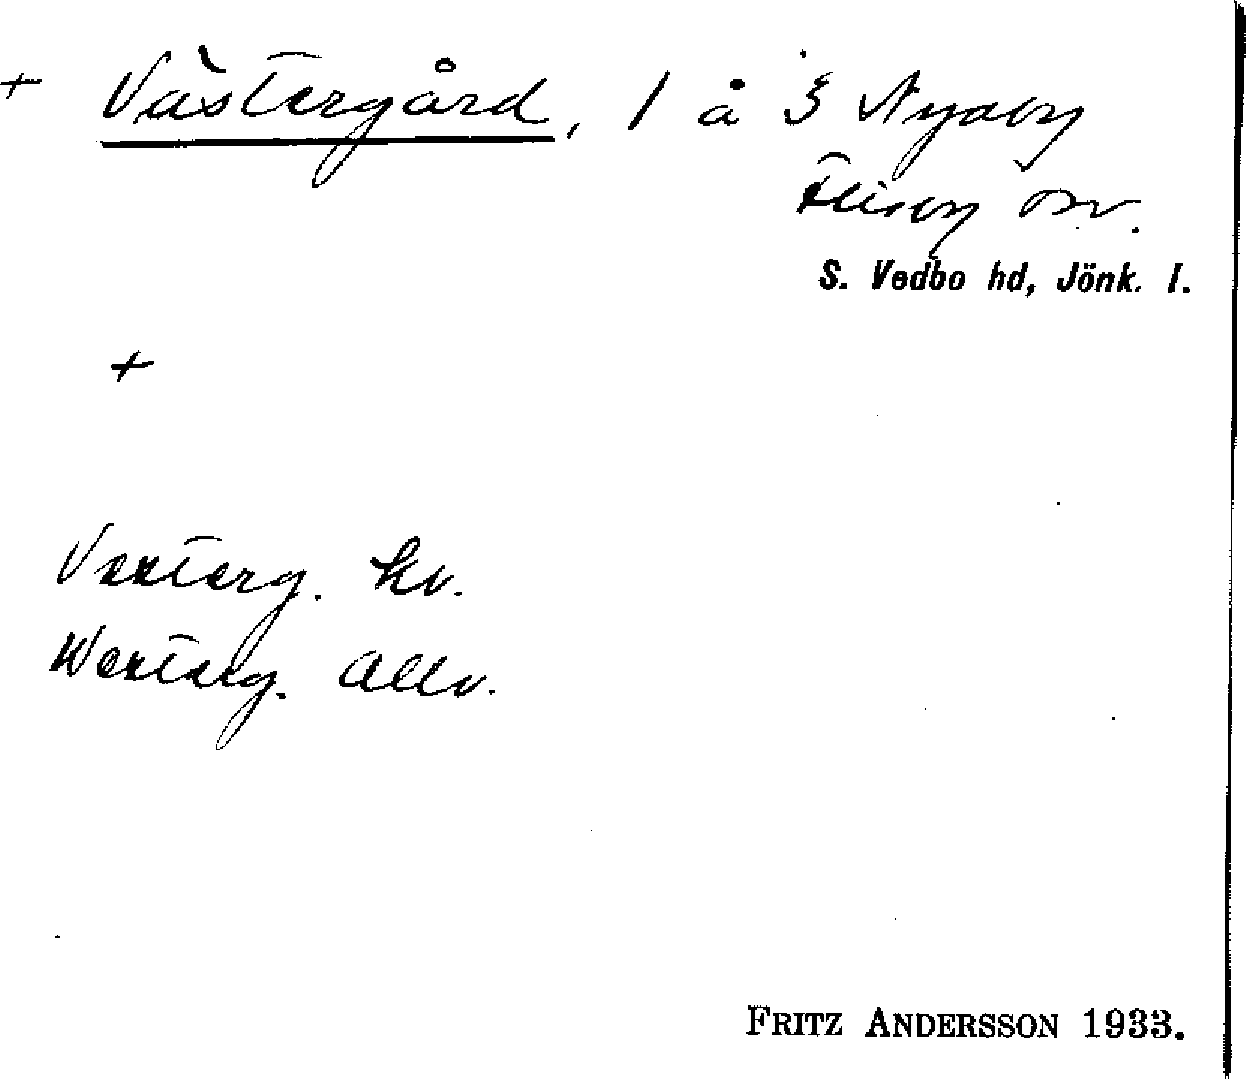 + Västergård, 1 å 3 Nyaby
Flisby sn.
S. Vedbo hd, Jönk. l.
+
Vesterg. kv.
Westerg. Allv.
FRITZ ANDERSSON 1933.